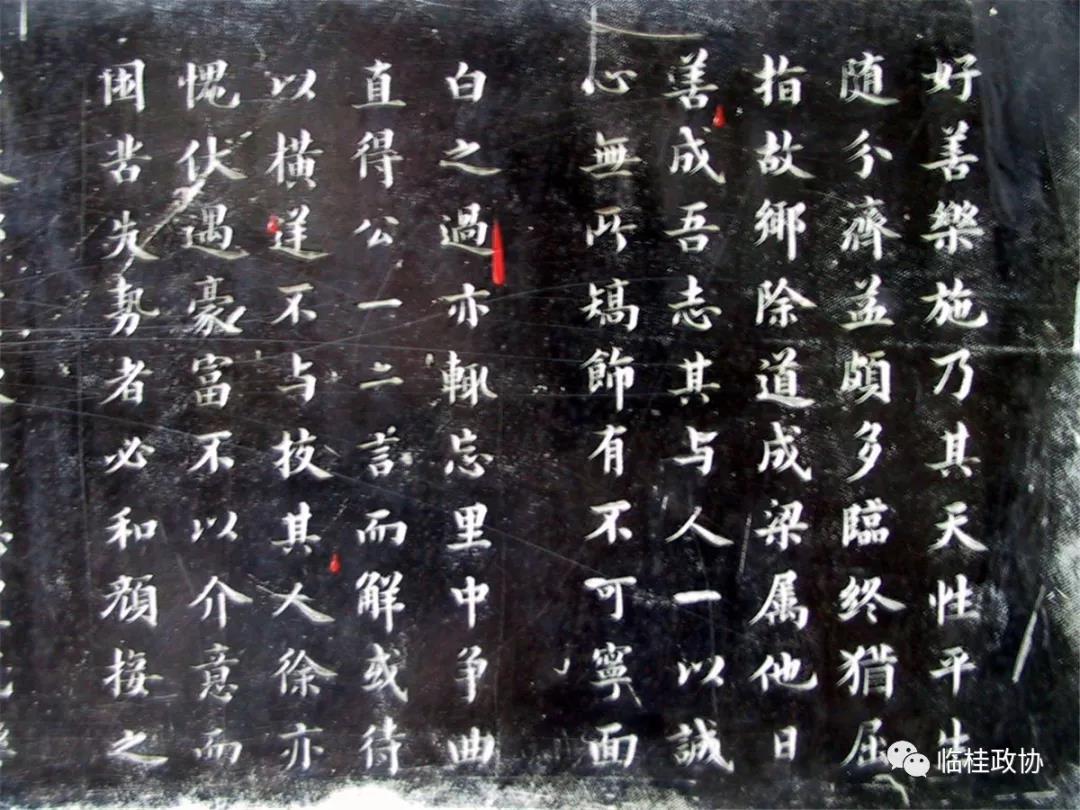 好善樂施乃其天性平生
随分濟益頗多臨終猶屈
指故鄉除道成梁属他日
善成吾志其与人一以誠
心無所矯飾有不可寧面
白之過亦輒忘里中争曲
直得公一二言而解或待
以橫逆不与技其人徐亦
愧伏遇豪富不以介意而
困苦失勢者必和顔接之
临桂政协